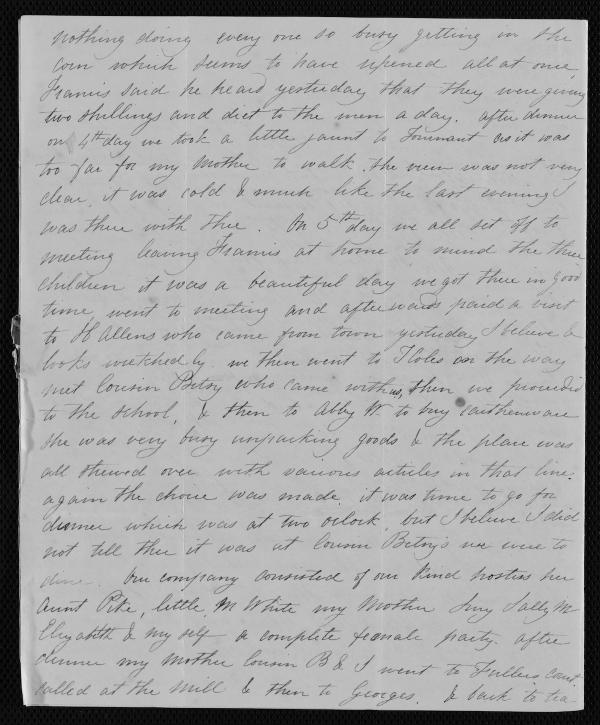 nothing doing every one so busy getting in the
corn which seems to have ripened all at once,
Francis said he heard yesterday that they were giving
two shillings and diet to the men a day. after dinner
on 4th day we took a little jaunt to as it was
too far for my Mother to walk. the view was not very
clear, it was cold & much like the last evening I
was there with thee. On 5th day we all set off to
meeting leaving Francis at home to mind the three
children it was a beautiful day we got there in good
time, went to meeting and afterwards paid a visit
to H Allens who came from town yesterday I believe &
looks wretchedly we then went to T Coles on the way
met Cousin Betsy who came with us, then we proceeded
to the school, & then to Abby W to buy earthenware
she was very busy unpacking goods & the place was
all strewed over with various articles in that line.
again the choice was made it was time to go for
dinner which was at two oclock, but I believe I did
not tell thee it was at Cousin Betsy's we were to
dine. Our company consisted of our kind hostess her
Aunt Pike, little M White my Mother Lucy Sally M
Elizabeth & my self a complete female party. after
dinner my Mother Cousin B & I went to Fullers court
called at the Mill & then to Georges. & back to tea